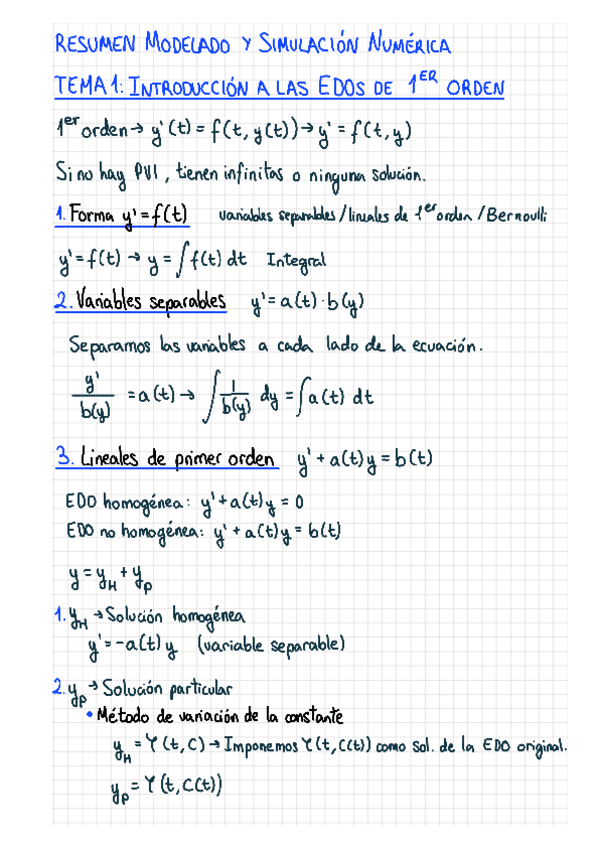 RESUMEN MODELADO Y SIMULACIÓN NUMÉRICA
TEMA 1: INTRODUCCIÓN A LAS EDOS DE 1ER ORDEN
1er orden → y'(t) = f(t, y(t)) → y' = f(t, y)
Si no hay PVI, tienen infinitas o ninguna solución.
1. Forma y' = f(t) variables separables / lineales de 1er orden / Bernoulli
y' = f(t) → y = ∫ f(t) dt Integral
2. Variables separables y' = a(t) · b(y)
Separamos las variables a cada lado de la ecuación.
y' / b(y) = a(t) → ∫ 1/b(y) dy = ∫ a(t) dt
3. Lineales de primer orden y' + a(t) y = b(t)
EDO homogénea: y' + a(t) y = 0
EDO no homogénea: y' + a(t) y = b(t)
y = y_H + y_P
1. y_H → Solución homogénea
y' = -a(t) y (variable separable)
2. y_P → Solución particular
• Método de variación de la constante
y_H = Y(t, C) → Imponemos Y(t, C(t)) como sol. de la EDO original.
y_P = Y(t, C(t))